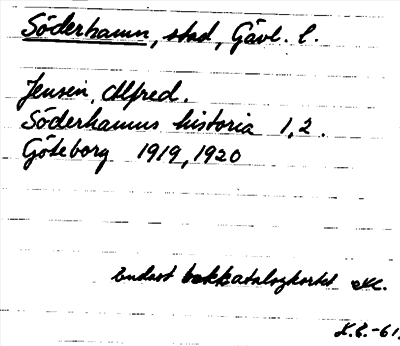 Söderhamn, stad, Gävl. l.
Jensen, Alfred.
Söderhamns historia 1, 2.
Göteborg 1919, 1920
Endast bokkatalogkortet
-61.